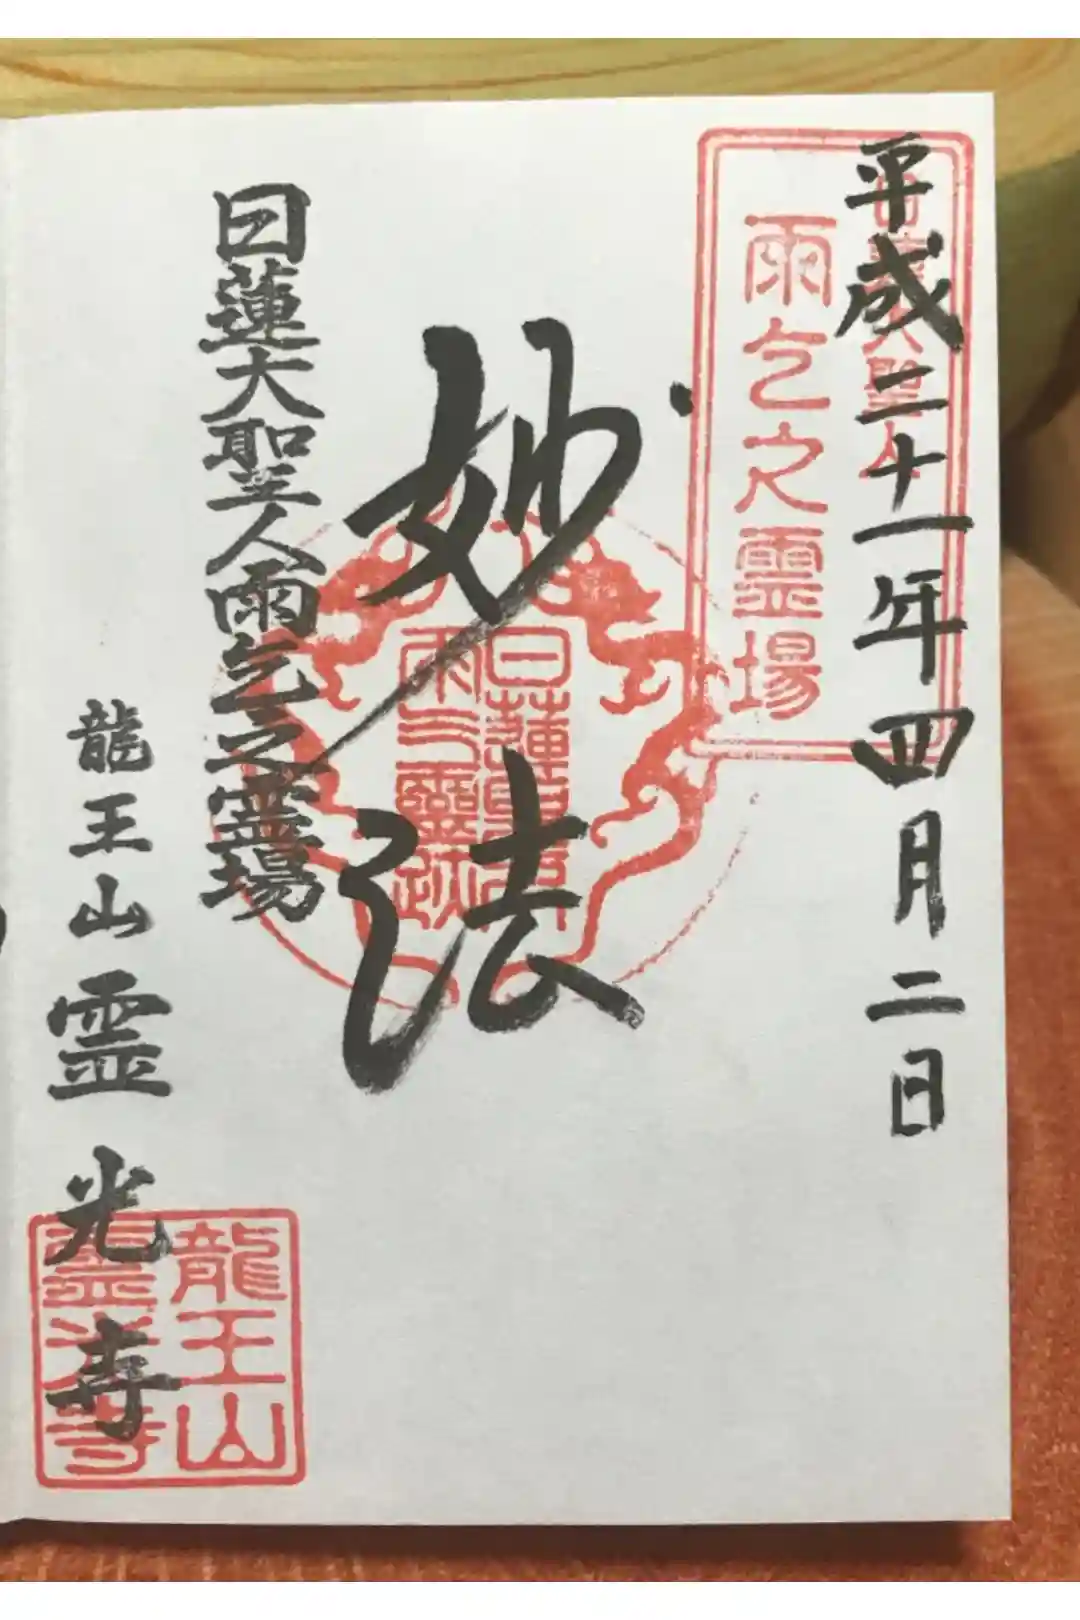 平成二十一年四月二日
日蓮大聖人
雨乞之霊場
妙法
日蓮
雨之靈跡
日蓮大聖人雨乞之霊場
龍王山霊光寺
龍王山
霊光寺